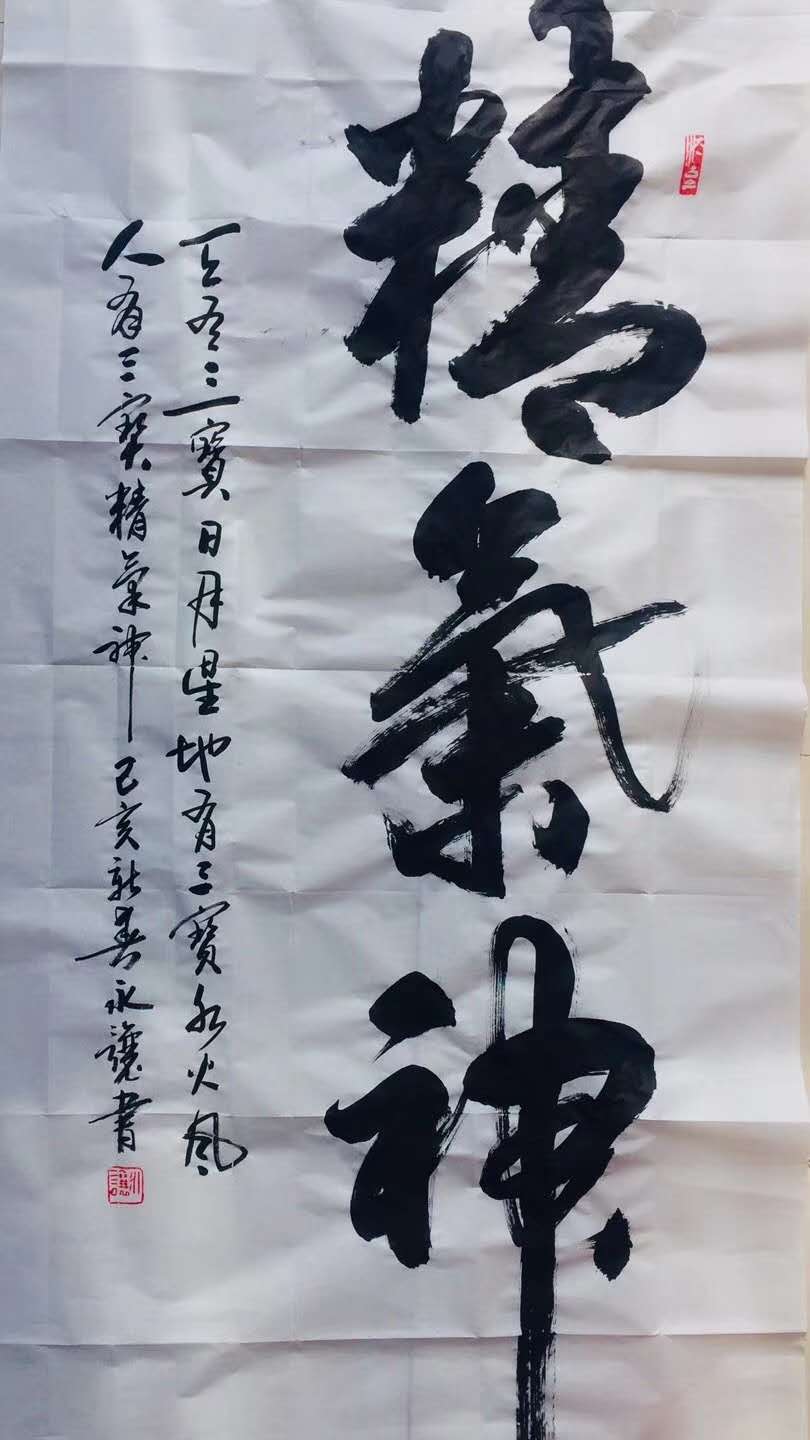 精氣神
天有三寶日月星地有三寶水火風
人有三寶精氣神己亥新春永讓書